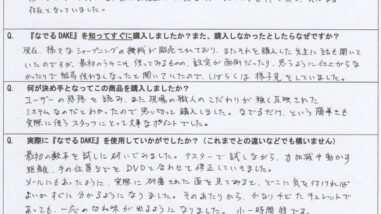 存在となっていました。
Q. 『なでるDAKE』を知ってすぐに購入しましたか？また、購入しなかったとしたらなぜですか？
現在、様々なシャープニングの機械が販売されており、またそれを購入した先生に話も聞いて
いたのですが、最初のうちこそ使ってみるものの、設定が面倒だったり、思うように仕上がらな
かったりで結局使わなくなったと聞いていたので、しばらくは様子見をしていました。
Q. 何が決め手となってこの商品を購入しましたか？
ユーザーの感想を読み、また現場の職人のこだわりが強く反映された
システムなのだとわかったので思い切って購入しました。なでるだけ、という簡単さも
実際に使うスタッフにとって大事なポイントでした。
Q. 実際に『なでるDAKE』を使用していかがでしたか？（これまでとの違いなどでも構いません）
最初の数本を試しに研いでみました。テスターで試しながら、力加減や動かす
距離、手の位置などをDVDと合わせて修正していました。
メールにもあったように、実際に研磨された面を見てみると、どこに気を付ければよ
いかすぐに分かるようになりました。そのあたりから、かなりチビたキュレットで
あっても、一応の切れ味が出せるようになりました。小一時間程です。